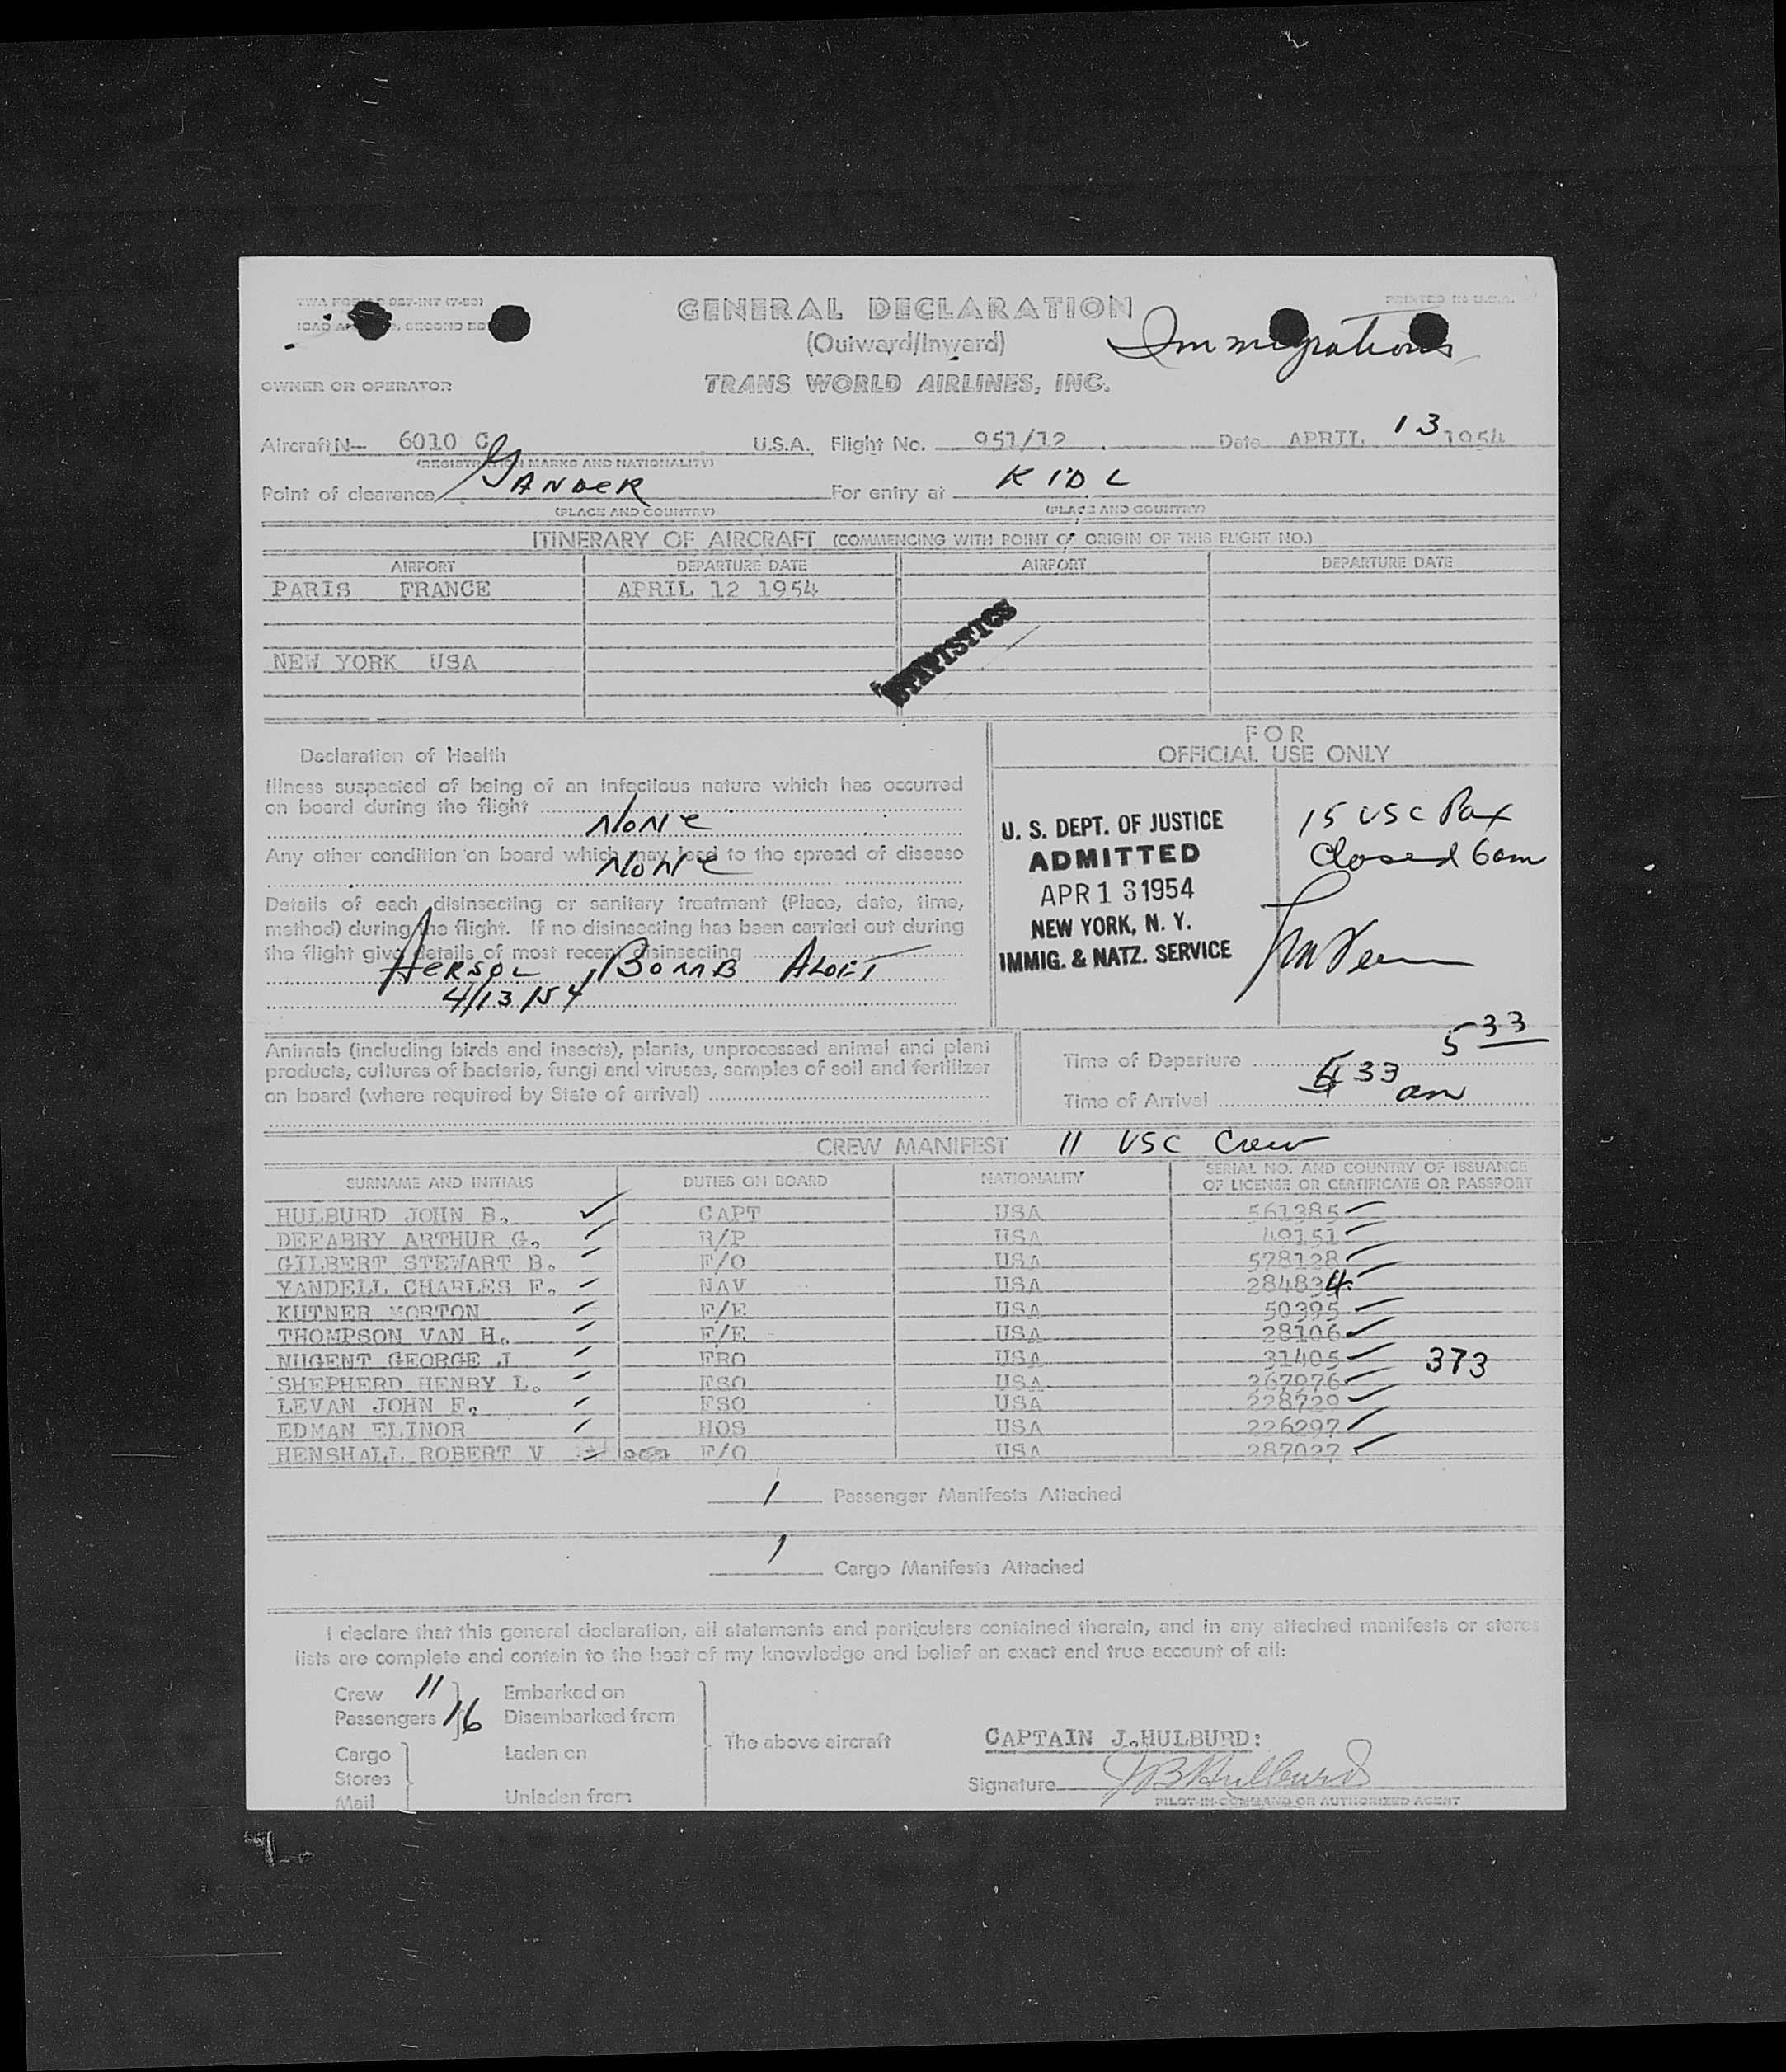 GENERAL DECLARATION
PRINTED IN U.S.A.
(Outward/Inward)
Immigrations
OWNER OR OPERATOR
TRANS WORLD AIRLINES, INC.
Aircraft N— 6010 C U.S.A. Flight No. 951/12 Date APRIL 13 1954
(REGISTRATION MARKS AND NATIONALITY)
Point of clearance GANDER For entry at KIDL
(PLACE AND COUNTRY) (PLACE AND COUNTRY)
ITINERARY OF AIRCRAFT (COMMENCING WITH POINT OF ORIGIN OF THIS FLIGHT NO.)
AIRPORT DEPARTURE DATE AIRPORT DEPARTURE DATE
PARIS FRANCE APRIL 12 1954
STATISTICS
NEW YORK USA
Declaration of Health
Illness suspected of being of an infectious nature which has occurred
on board during the flight
None
Any other condition on board which may lead to the spread of disease
None
Details of each disinsecting or sanitary treatment (Place, date, time,
method) during the flight. If no disinsecting has been carried out during
the flight give details of most recent disinsecting
AERSOL BOMB ALOFT
4/13/54
FOR
OFFICIAL USE ONLY
U. S. DEPT. OF JUSTICE
ADMITTED
APR 13 1954
NEW YORK, N. Y.
IMMIG. & NATZ. SERVICE
15 USC Pax
Closed 6am
Animals (including birds and insects), plants, unprocessed animal and plant
products, cultures of bacteria, fungi and viruses, samples of soil and fertilizer
on board (where required by State of arrival)
Time of Departure 5 33
Time of Arrival 5 33 am
CREW MANIFEST 11 USC Crew
SURNAME AND INITIALS DUTIES ON BOARD NATIONALITY SERIAL NO. AND COUNTRY OF ISSUANCE
OF LICENSE OR CERTIFICATE OR PASSPORT
HULBURD JOHN B. CAPT USA 561385
DEFABRY ARTHUR G. R/P USA 49151
GILBERT STEWART B. F/O USA 578128
YANDELL CHARLES F. NAV USA 284834
KUTNER MORTON F/E USA 50395
THOMPSON VAN H. F/E USA 28106
NUGENT GEORGE J FRO USA 31405 373
SHEPHERD HENRY L. FSO USA 267976
LEVAN JOHN F. FSO USA 228729
EDMAN ELINOR HOS USA 226297
HENSHALL ROBERT V F/O USA 287027
1 Passenger Manifests Attached
1 Cargo Manifests Attached
I declare that this general declaration, all statements and particulars contained therein, and in any attached manifests or stores
lists are complete and contain to the best of my knowledge and belief an exact and true account of all:
Crew 11 Embarked on
Passengers 16 Disembarked from
The above aircraft
Cargo Laden on
Stores
Mail Unladen from
CAPTAIN J.HULBURD:
Signature JB Hulburd
PILOT-IN-COMMAND OR AUTHORIZED AGENT